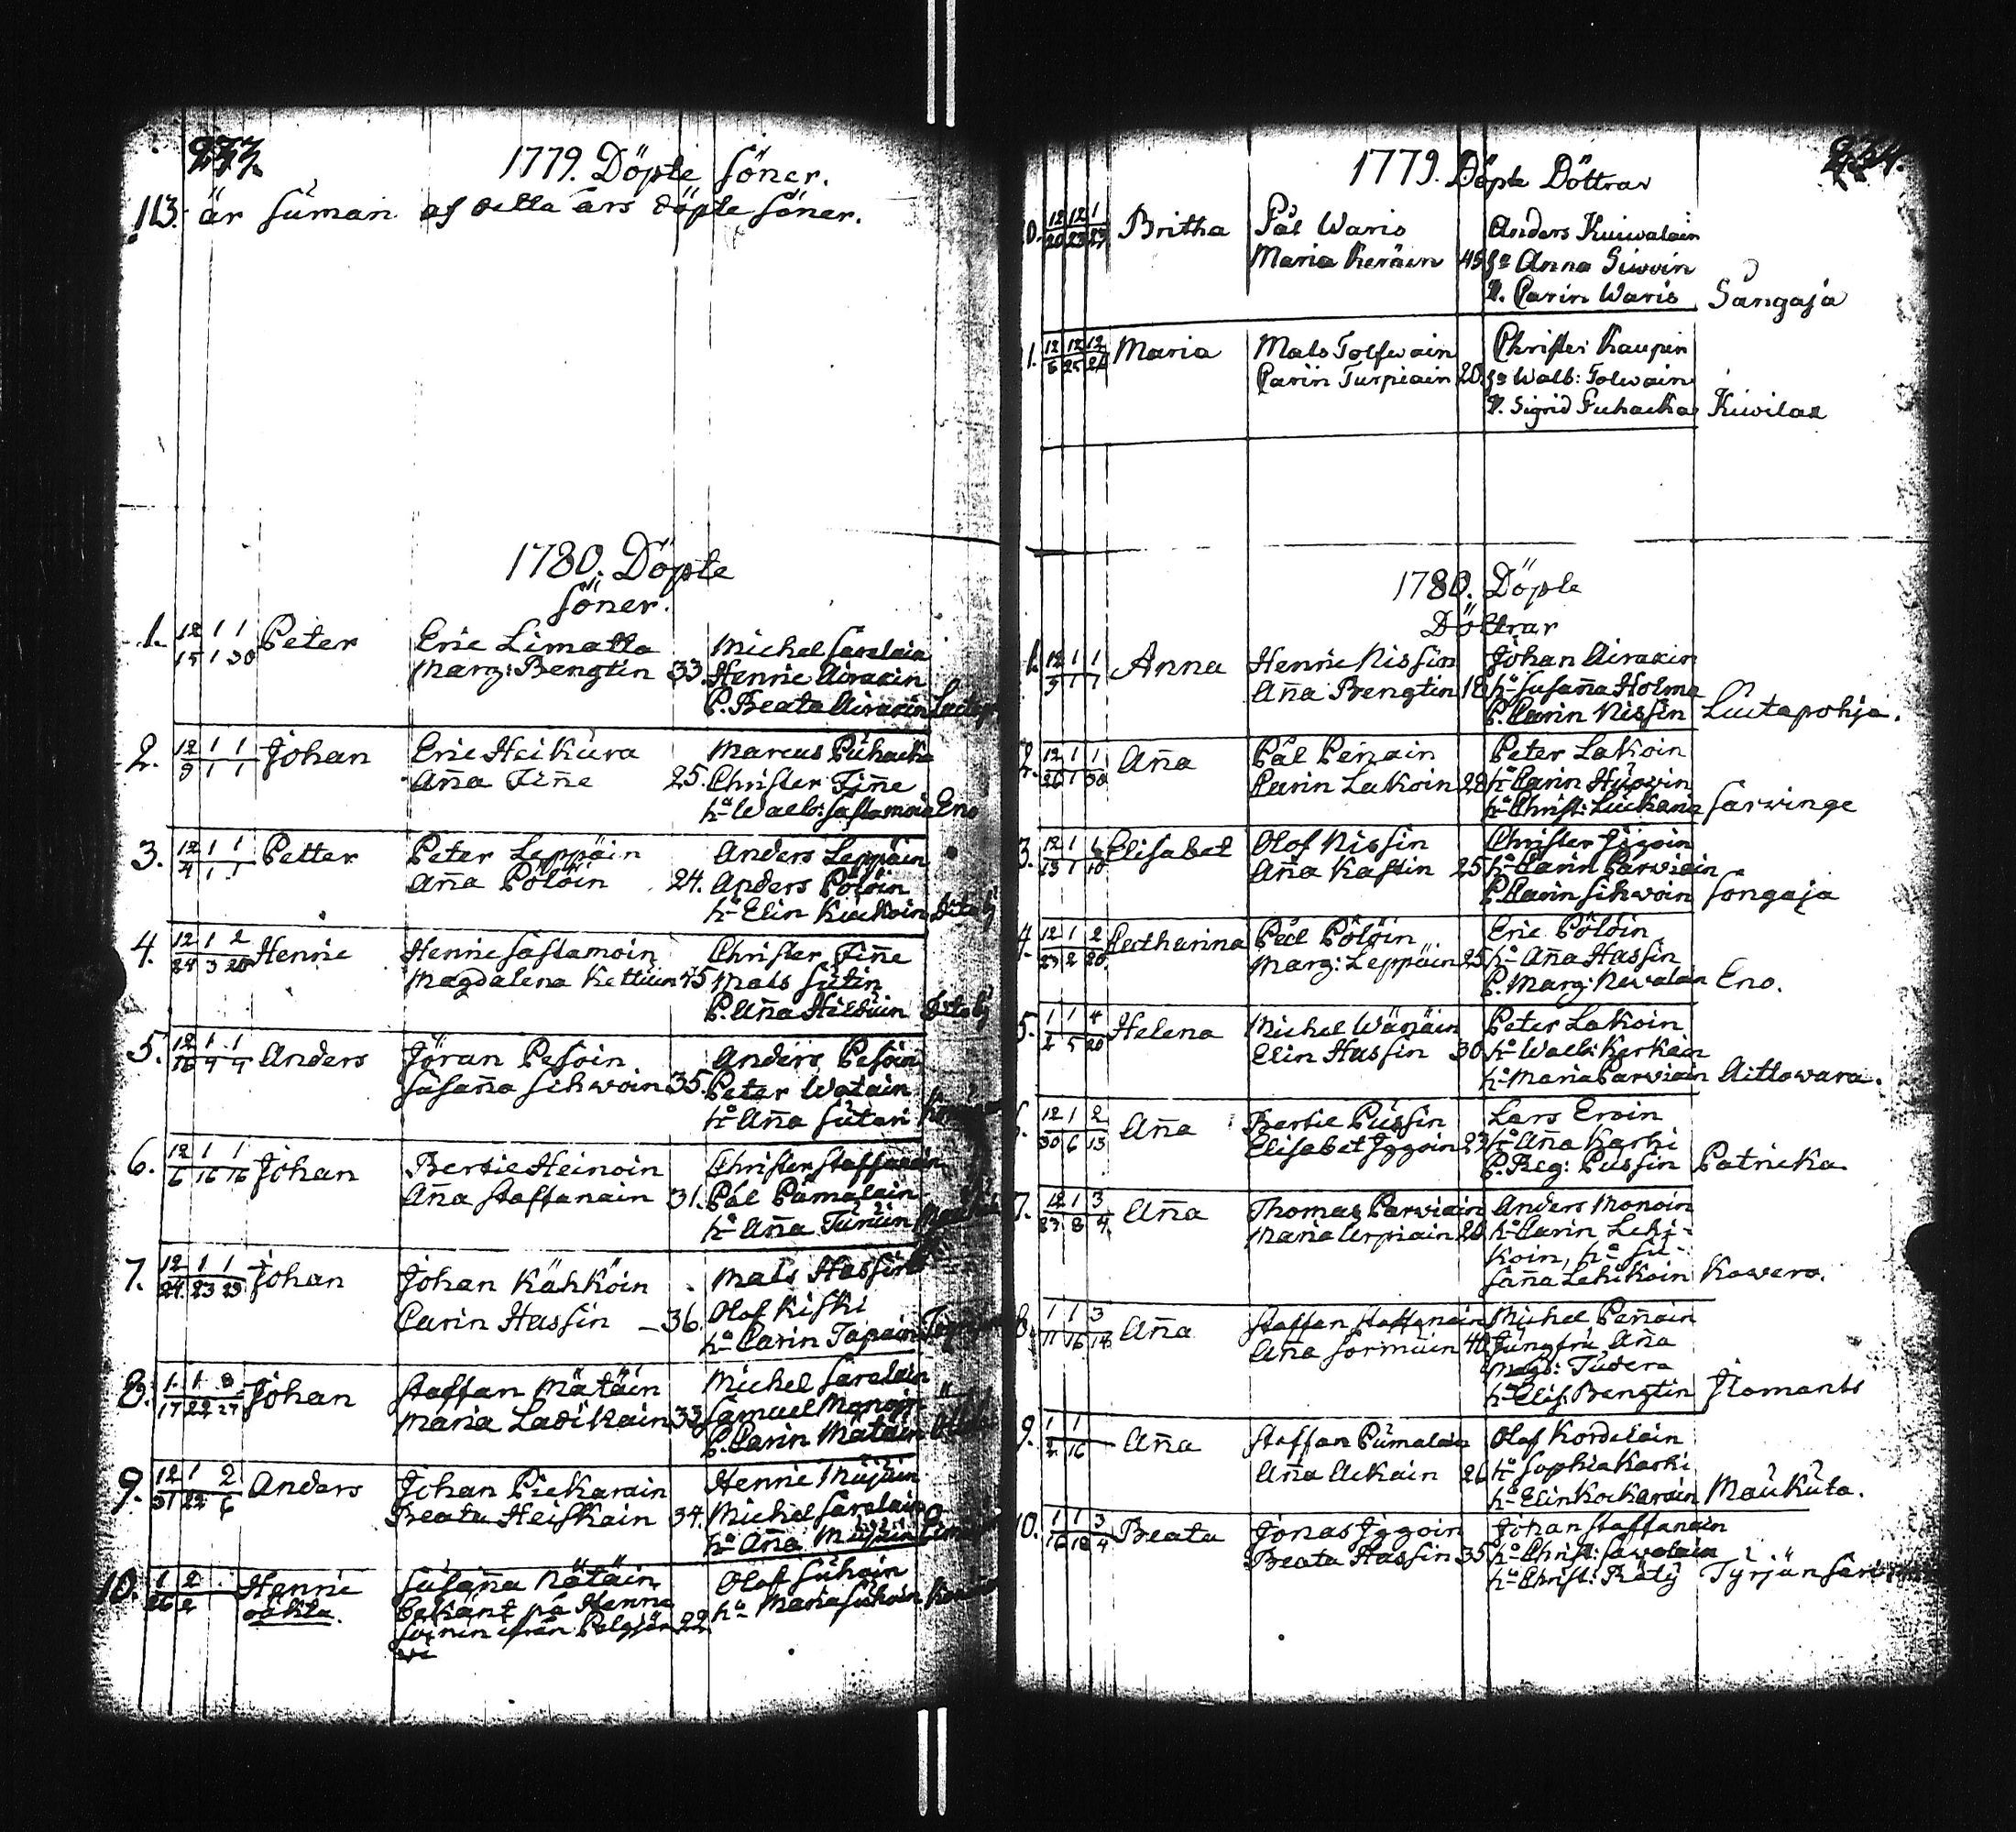 233.
1779. Döpte Söner.
113. är Suman af detta års döpte Söner.
1780. Döpte
Söner.
1. 12/15 1/1 1/30 Peter Eric Limatta Michel Savolain
Marg: Bengtin 33. Henric Airaxin
P. Beata Airaxin
2. 12/9 1/1 1/1 Johan Eric Heikura Marcus Puhacka
Aña Fiñe 25. Christer Fiñe
h:o Walb: Sastamoin Eno
3. 12/4 1/1 1/1 Petter Peter Leppäin Anders Leppäin
Aña Pölöin 24. Anders Pölöin
h:o Elin Kiukoin dito by
4. 12/24 1/3 2/20 Henric Henric Sastamoin Christer Fiñe
Magdalena Kettuin 45 Mats Sutin
P. Aña Hilduin dito by
5. 12/16 1/4 1/4 Anders Jöran Pesoin Anders Pesoin
Susaña Sihwoin 35. Peter Watain
h:o Aña Sutari
6. 12/6 1/16 1/16 Johan Bertie Heinoin Christer Staffanain
Aña Staffanain 31. Pål Pumalain
h:o Aña Turuin
7. 12/24 1/23 1/29 Johan Johan Kähköin Mats Hassin
Carin Hassin 36. Olof Kiski
h:o Carin Tapain
8. 1/17 1/22 3/27 Johan Staffan Mätäin Michel Savolain
Maria Ladikain 33 Samuel Monoin
P. Carin Mätäin
9. 12/31 1/22 2/6 Anders Johan Piekarain Henric Mujuin
Beata Heiskain 34. Michel Savolain
h:o Aña Mujuin
10. 1/26 2/2 Henric Susaña Nätäin Olof Suhoin
oäkta. bekant på Henric h:o Maria Suhoin
Soinin ifrån Pelgjär 22
vi
234.
1779. Döpte Döttrar
0. 12/20 12/23 1/23 Britha Pål Waris Anders Kuiwalain
Maria Keräin 45 h:o Anna Siwoin
P. Carin Waris Sångaja
1. 12/6 12/25 12/26 Maria Mats Tolfwain Christer Kaupin
Carin Turpiain 20. h:o Walb: Tolwain
P. Sigrid Puhacka Kiwilax
1780. Döpte
Döttrar
1. 12/3 1/1 1/1 Anna Henric Nissin Johan Airaxin
Aña Bengtin 18 h:o Susaña Holma
P. Carin Nissin Luutapohja.
2. 12/26 1/1 1/30 Aña Pål Peñain Peter Lakoin
Carin Lakoin 28 h:o Carin Hurwin
h:o Christ: Luckana Sarwinge
3. 12/13 1/1 1/10 Elisabet Olof Nissin Christer Jggoin
Aña Kastin 25 h:o Carin Parwiain
P. Carin Sihwoin Songaja
4. 12/23 1/2 2/20 Catharina Pål Pölöin Eric Pölöin
Marg: Leppäin 25 h:o Aña Hassin
P. Marg: Newalain Eno.
5. 1/2 1/5 4/20 Helena Michel Wänäin Peter Lakoin
Elin Hassin 30 h:o Walb: Kerkäin
h:o Maria Parwiain Aittowara.
6. 12/30 1/6 2/13 Aña Bertie Pussin Lars Eroin
Elisabet Jggoin 23 h:o Aña Karhi
P. Reg: Pussin Patricka
7. 12/23 1/8 3/4 Aña Thomas Parwiain Anders Monoin
Maria Urpiain 28 h:o Carin Lehi-
koin, h:o Su-
saña Lehikoin Kowero.
8. 1/11 1/16 3/14 Aña Staffan Staffanain Michel Peñain
Aña Sormuin 40 Jungfru Aña
Magd: Tudera
h:o Elis: Bengtin Jlomants
9. 1/2 1/16 Aña Staffan Pumalain Olof Kordelain
Aña Ackain 26 h:o Sophia Karhi
h:o Elin Kockarain Maukula.
10. 1/16 1/18 3/4 Beata Jonas Jggoin Johan Staffanain
Beata Hassin 35 h:o Christ: Savolain
h:o Christ: Räty